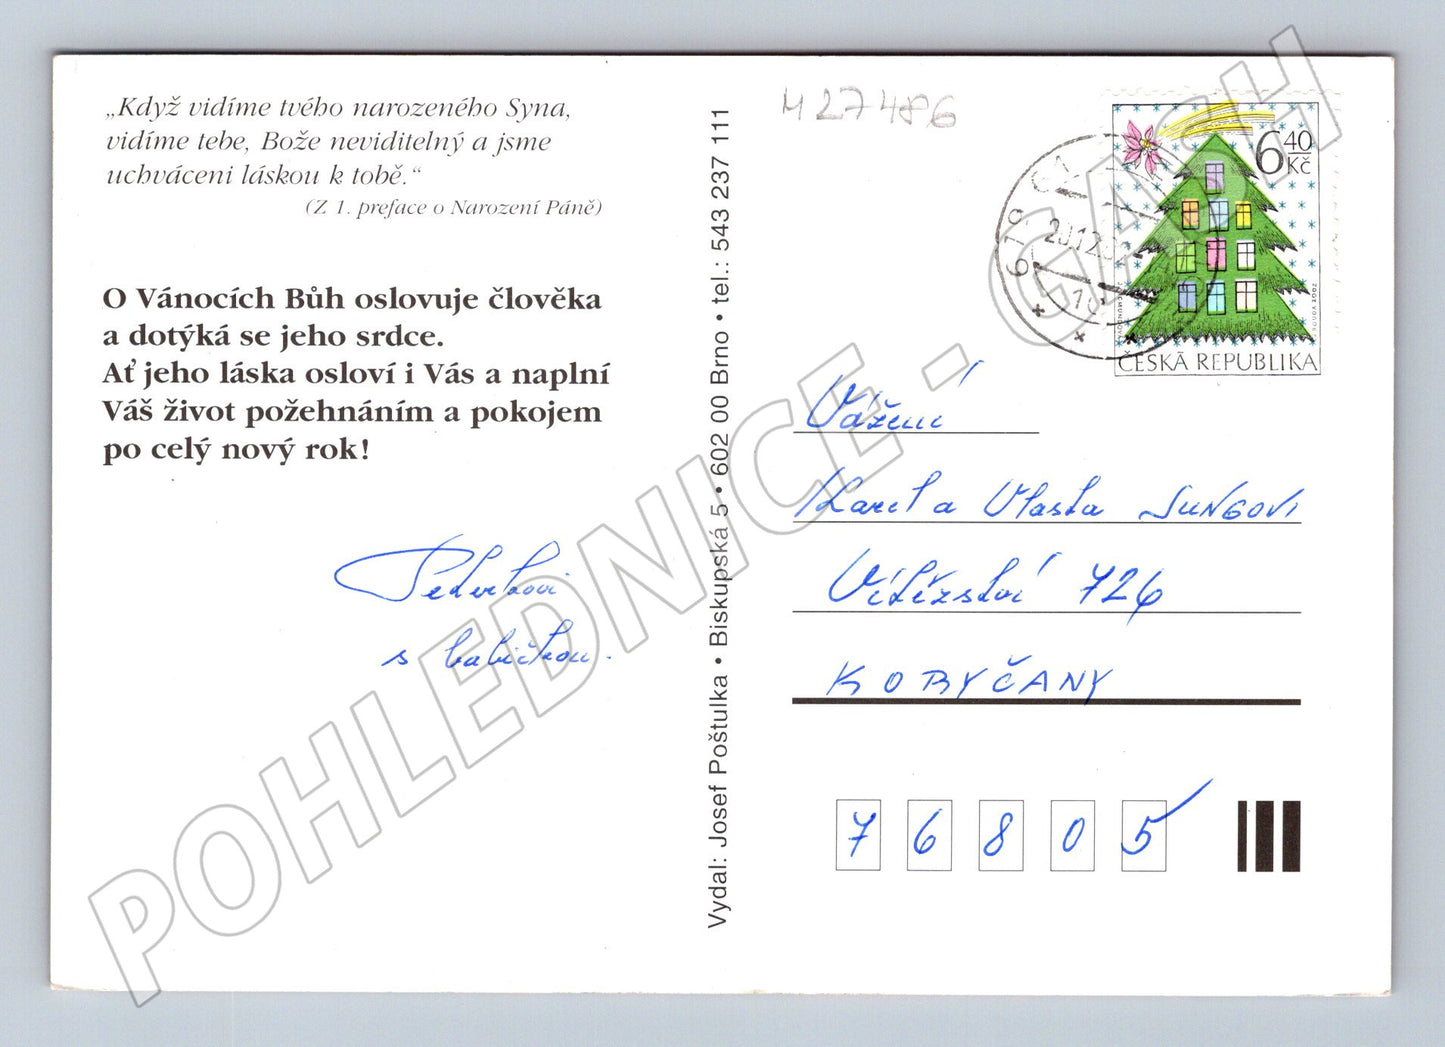 „Když vidíme tvého narozeného Syna,
vidíme tebe, Bože neviditelný a jsme
uchváceni láskou k tobě.“
(Z 1. preface o Narození Páně)
O Vánocích Bůh oslovuje člověka
a dotýká se jeho srdce.
Ať jeho láska osloví i Vás a naplní
Váš život požehnáním a pokojem
po celý nový rok!
s babičkou.
Vydal: Josef Poštulka • Biskupská 5 • 602 00 Brno • tel.: 543 237 111
M27486
6 40
Kč
ČESKÁ REPUBLIKA
Vážení
Karel a Vlasta JUNGOVI
Vítězství 726
KORYČANY
76805
POHLEDNICE - GASH